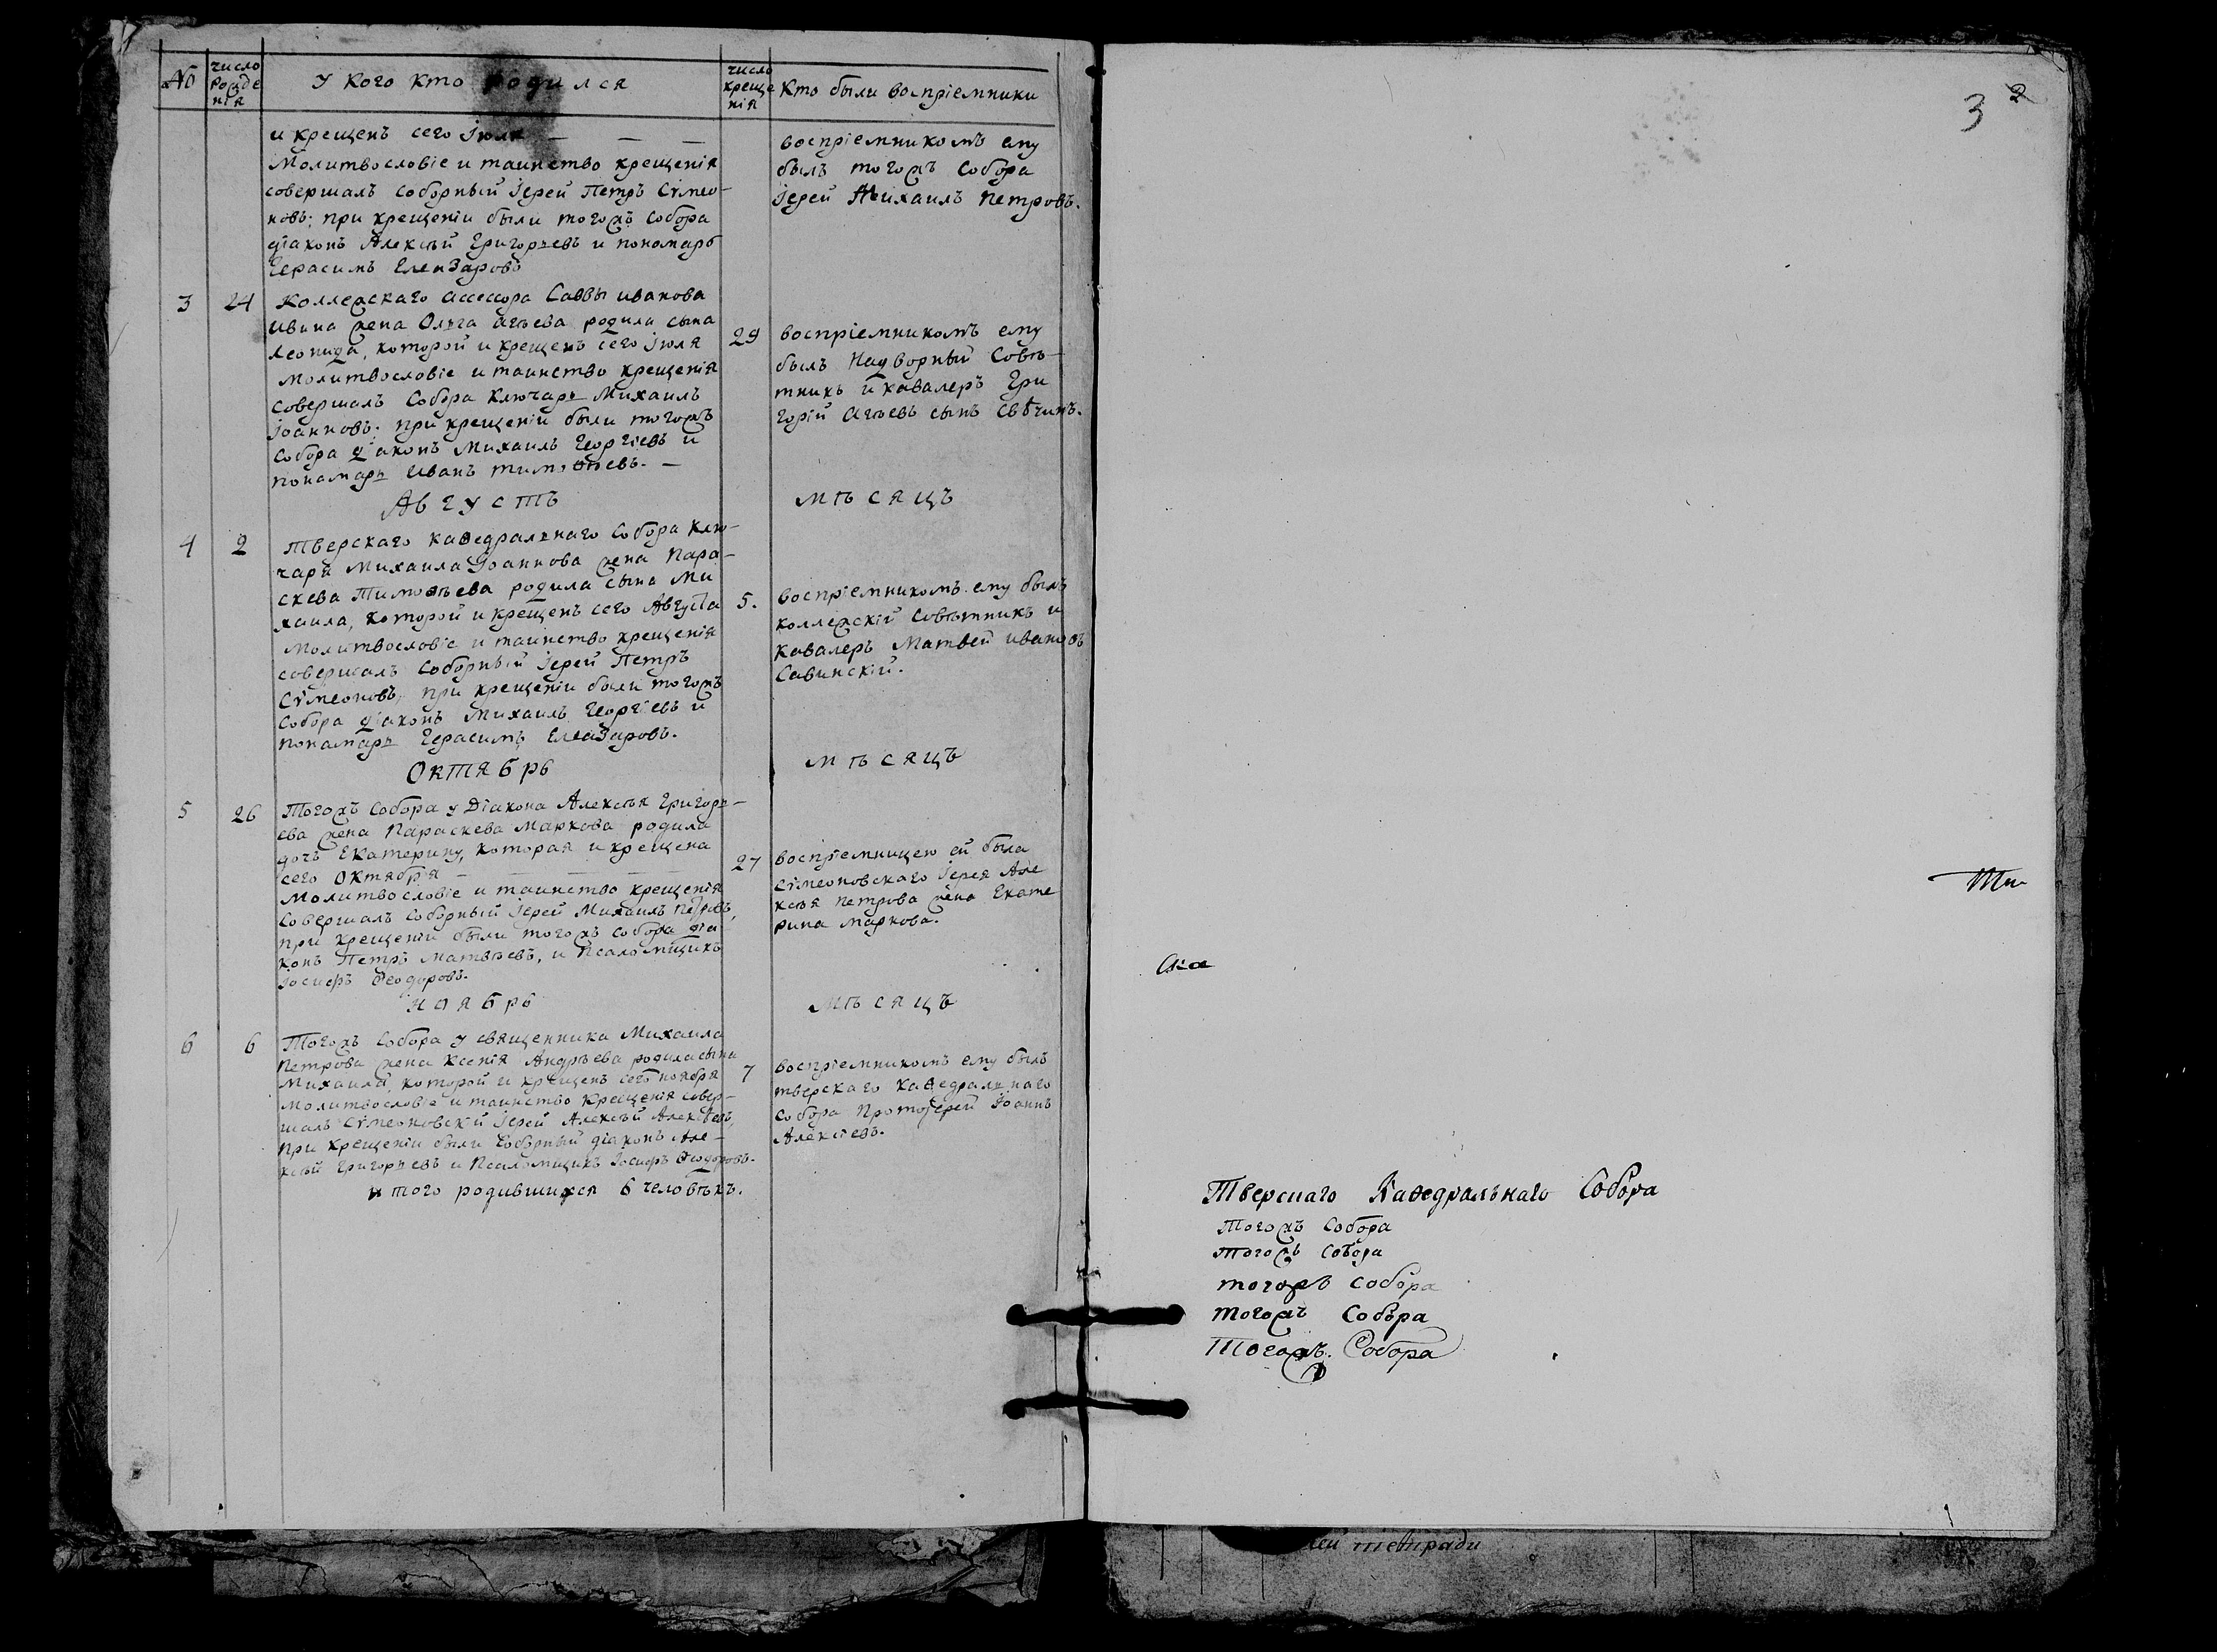 №
число рожденія
у кого кто родился
число крещенія
Кто были воспріемники
и крещенъ сего Іюля — — —
Молитвословіе и таинство крещенія
совершалъ соборный Іерей Петръ Сѵмео-
новъ; при крещеніи были тогожъ Собора
діаконъ Алексѣй Григорьевъ и пономарь
Герасимъ Елеазаровъ
воспріемникомъ ему
былъ тогожъ Собора
Іерей Михаилъ Петровъ.
3 24 Коллежскаго Ассессора Саввы иванова
Ивина жена Ольга Агѣева родила сына
Леонида, которой и крещенъ сего Іюля
Молитвословіе и таинство крещенія
совершалъ Собора Ключарь Михаилъ
Іоанновъ; при крещеніи были тогожъ
Собора діаконъ Михаилъ Георгіевъ и
пономарь Иванъ Тимоѳѣевъ. —
29 воспріемникомъ ему
былъ Надворный Совѣ-
тникъ и кавалеръ Гри
горій Агѣевъ сынъ Свѣчинъ.
Августъ мѣсяцъ
4 2 Тверскаго Каѳедральнаго Собора Клю-
чаря Михаила Іоаннова жена Пара-
скева Тимоѳѣева родила сына Ми
хаила, которой и крещенъ сего Августа
Молитвословіе и таинство крещенія
совершалъ Соборный Іерей Петръ
Сѵмеоновъ, при крещеніи были тогожъ
Собора діаконъ Михаилъ Георгіевъ и
пономарь Герасимъ Елеазаровъ.
5. воспріемникомъ ему былъ
коллежскій Совѣтникъ и
кавалеръ Матвей ивановъ
Савинскій.
Октябрь мѣсяцъ
5 26 Тогожъ Собора у Діакона Алексѣя Григорь-
ева жена Параскева Маркова родила
дочь Екатерину, которая и крещена
сего Октября — — — —
Молитвословіе и таинство крещенія
Совершалъ Соборный Іерей Михаилъ Петровъ,
при крещеніи были тогожъ собора діа-
конъ Петръ Матвѣевъ, и Псаломщикъ
Іосифъ Ѳеодоровъ.
27 воспріемницею ей была
Сѵмеоновскаго Іерея Але
ксѣя Петрова жена Екате
рина Маркова.
Ноябрь мѣсяцъ
6 6 Тогожъ Собора у священника Михаила
Петрова жена Ксенія Андрѣева родила сына
Михаила, которой и крещенъ сего ноября
Молитвословіе и таинство Крещенія совер-
шалъ Сѵмеоновскій Іерей Алексѣй Алексѣевъ,
при крещеніи были Соборный діаконъ Але-
ксѣй Григорьевъ и Псаломщикъ Іосифъ Ѳеодоровъ.
7 воспріемникомъ ему былъ
тверскаго Каѳедральнаго
Собора Протоіерей Іоаннъ
Алексіевъ.
итого родившихся 6 человѣкъ.
3 2
Тверскаго Каѳедральнаго Собора
Тогожъ Собора
тогожъ собора
тогожъ собора
тогожъ Собора
Тогожъ Собора
тетради